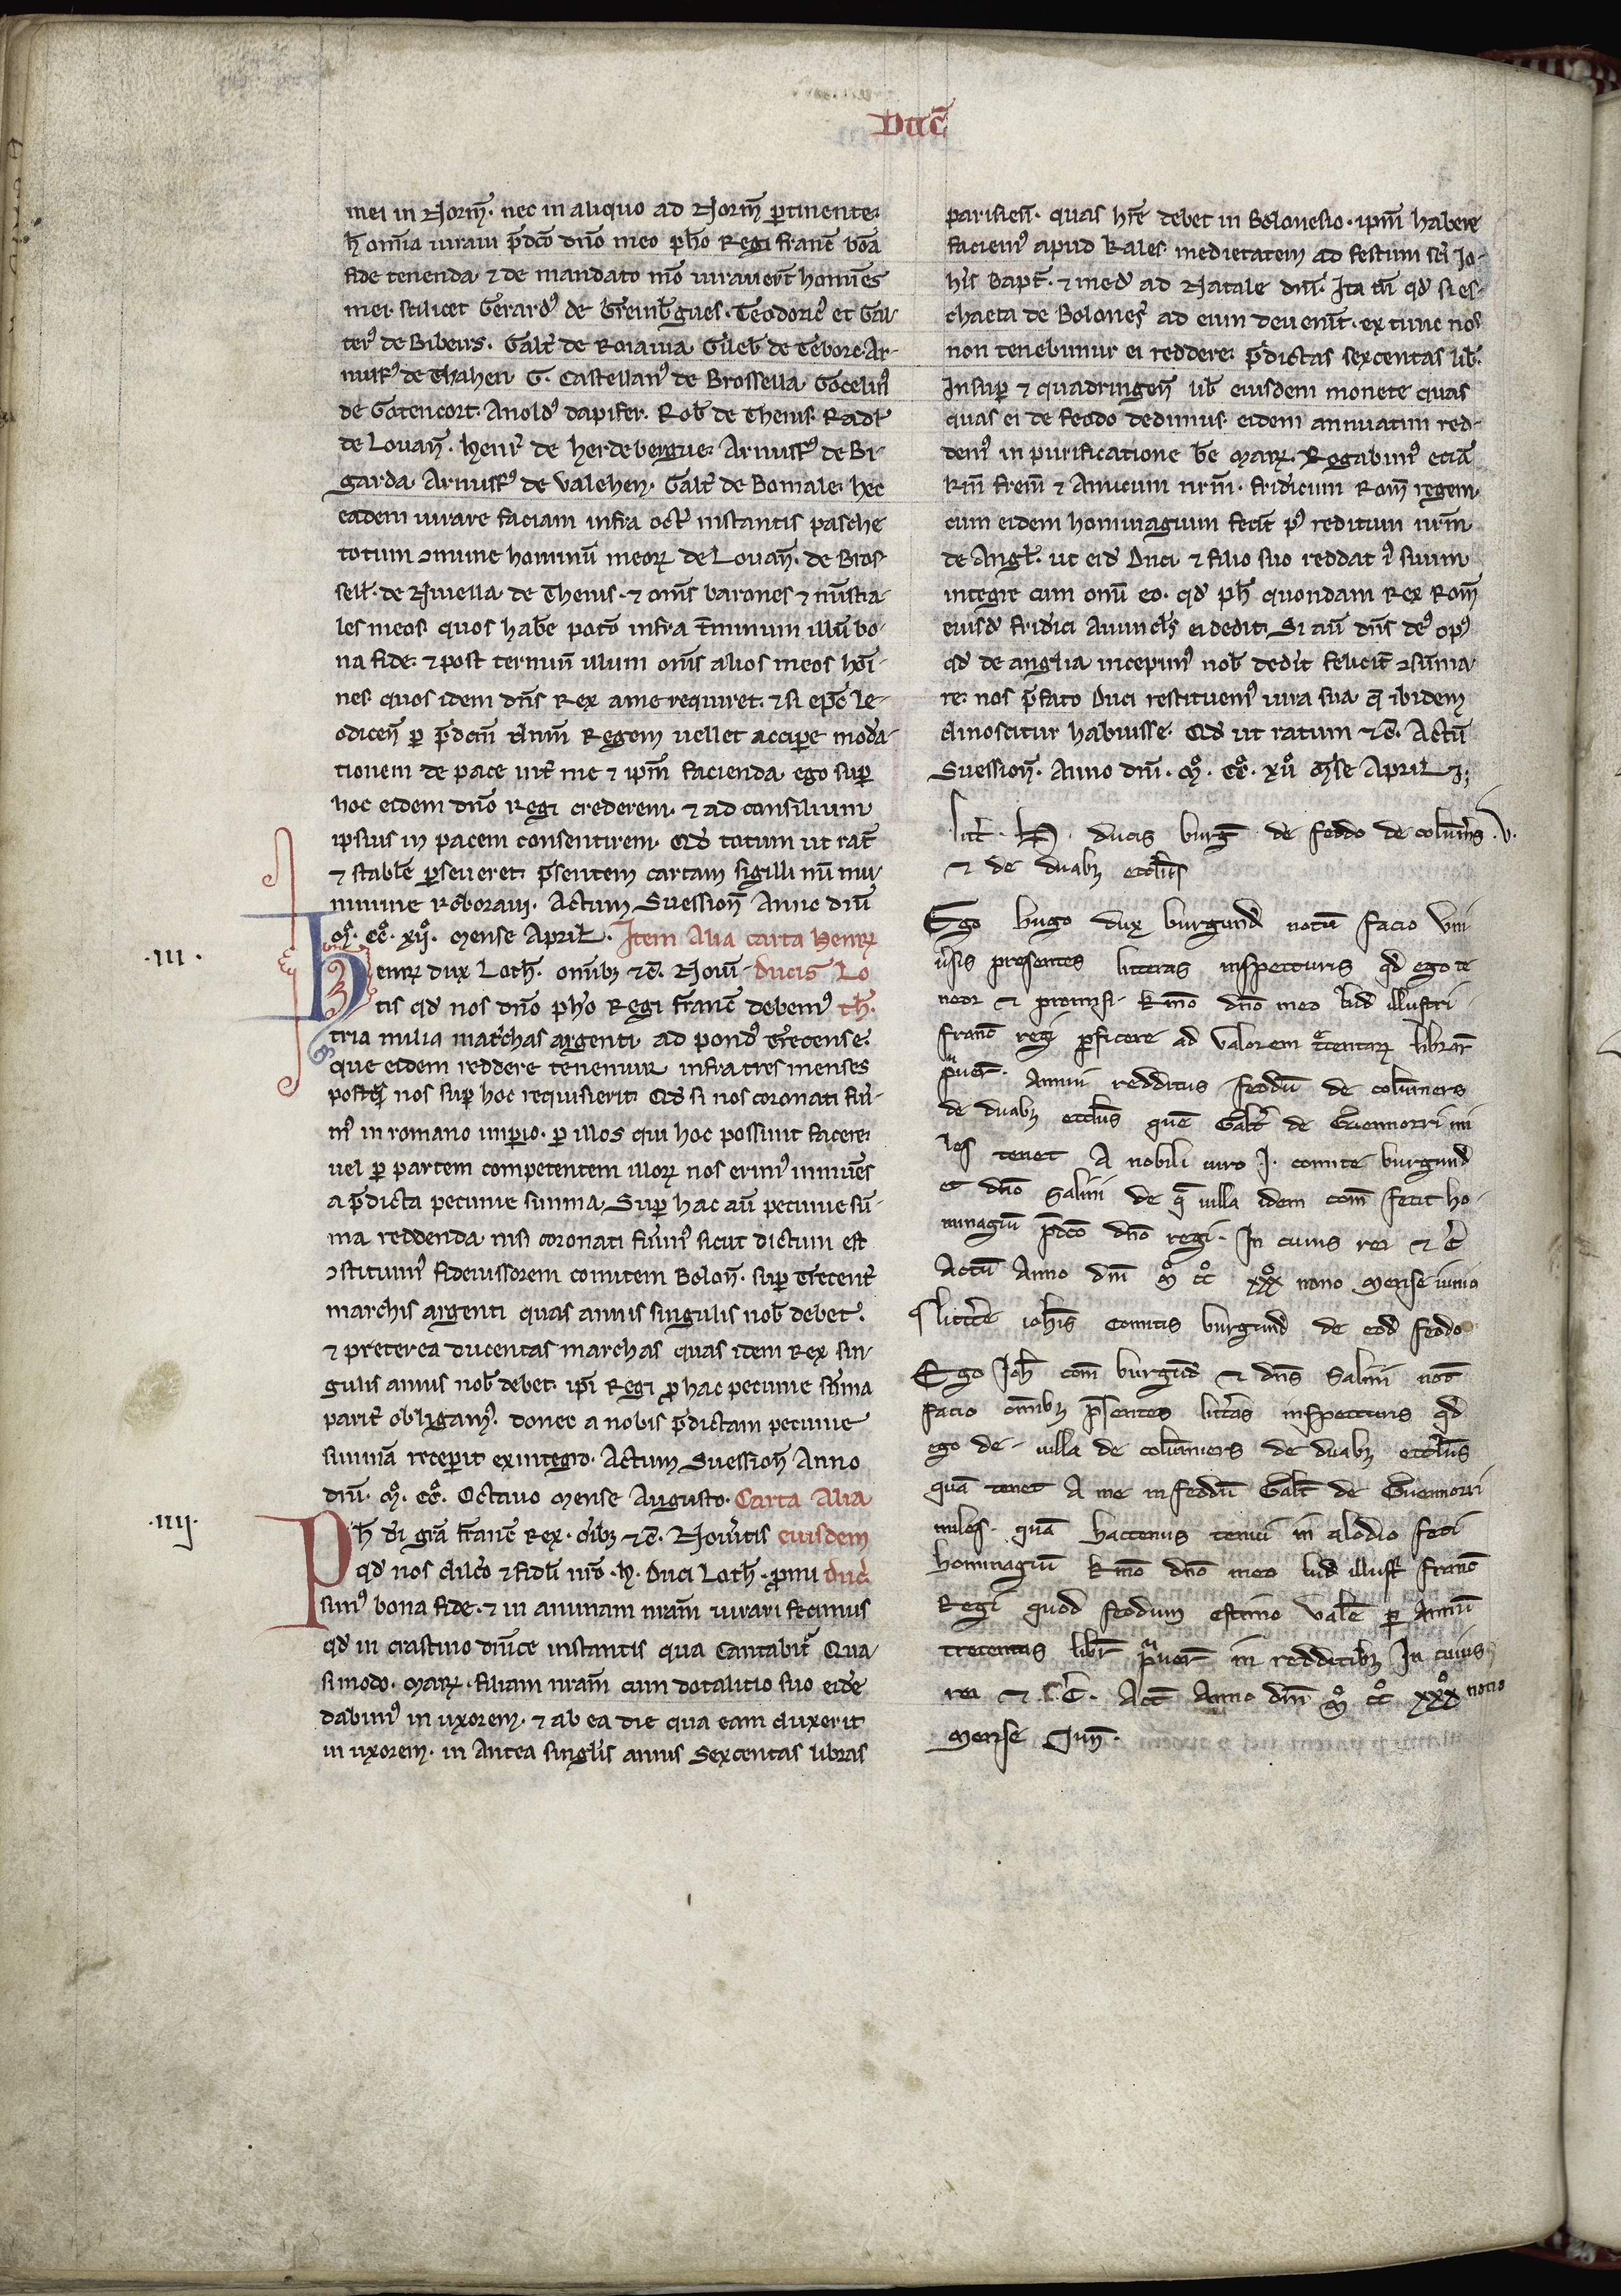 Duc̄
mei in Norm̄. nec in aliquo ad Norm̄ ꝑtinente.
h̄ omnia iuraui p̄dc̄o dn̄o meo ph̄o Regi franc̄ bona
fide tenenda ⁊ de mandato m̄o iurauer̄t homines
mei. scilicet Gerardꝰ de Greimb̄gues. Teodoric̄ et Gal-
terꝰ de Bibeirs. Galt̄ de Roiauia. Guleb̄ de Tebore. Ar-
nulfꝰ de Thahen G. Castellanꝰ de Brossella. Gocelinꝰ
de Gotencort. Arnoldꝰ dapifer. Rob̄ de Thenis. Radl̄
de Louan̄. Henr̄ de herdebergue. Arnulfꝰ de Bi-
garda. Arnulfꝰ de Valehen. Galt̄ de Bomale. hec
eadem iurare faciam infra oct̄ instantis pasche
totum ꝯmune hominū meoꝝ de Louan̄. de Bros-
sell̄. de Niuella de Thenis. ⁊ om̄s barones ⁊ mīstia-
les meos quos hab̄e potō infra t̄minum illū bo-
na fide. ⁊ post terminū illum om̄s alios meos hoī-
nes quos idem dn̄s Rex a me requiret. ⁊ si ep̄c Le-
odicen̄ ꝑ p̄dcm̄ dn̄m Regem uellet accipe moda-
tionem de pace int̄ me ⁊ ip̄m facienda ego suꝑ
hoc eidem dn̄o Regi crederem. ⁊ ad consilium
ipsius in pacem consentirem. Qd̄ totum ut rat̄
⁊ stabile ꝑseueret p̄sentem cartam sigilli mī mu-
nimine roboraui. Actum Suession̄ Anno dn̄i
.m̊. cc̊. xij̊. Mense April̄. Item Alia carta Henrꝝ
.III.
Henrꝝ dux Loth̄. omībꝫ ⁊c̄. Noui- ducis Lo
tis qd̄ nos dn̄o ph̄o Regi franc̄ debemꝰ th̄.
tria milia marchas argenti ad pondꝰ Trecense.
que eidem reddere tenemur infra tres menses
postqꝫ nos suꝑ hoc requisierit. Qd̄ si nos coronati fu-
mꝰ in romano impio. ꝑ illos qui hoc possunt facere.
uel ꝑ partem competentem illoꝝ nos erimꝰ inmunes
a p̄dicta pecunie summa. Suꝑ hac aū pecunie sū-
ma reddenda nisi coronati fuimꝰ sicut dictum est
ꝯstituimꝰ fideiussorem comitem Bolon̄. suꝑ Trecent̄
marchis argenti quas annis singulis nob̄ debet.
⁊ preterea ducentas marchas quas idem Rex sin-
gulis annis nob̄ debet. ip̄i Regi ꝓ hac pecunie sūma
parit̄ obligamꝰ. donec a nobis p̄dictam pecunie
summā receperit ex integro. Actum Suession̄ Anno
dn̄i. m̊. cc̊. Octauo mense Augusto. Carta Alia
.IIIJ.
Ph̄ di gr̄a franc̄ Rex. oībꝫ ⁊c̄. Nou̅itis eiusdem
qd̄ nos dilc̄o ⁊ fidel̄i nr̄o .h̄. Duci Loth̄. ꝓmi duc̄.
simꝰ bona fide. ⁊ in animam nr̄am iurari fecimus
qd̄ in crastino dn̄ice instantis qua Cantabit̄ Qua-
simodo. Marꝝ. filiam nr̄am cum dotalitio suo eidē
dabimꝰ in uxorem. ⁊ ab ea die qua eam duxerit
in uxorem. in Antea singlis annis Sexcentas libras
parisien̄. quas hr̄e debet in Bolonesio. ip̄m habere
faciemꝰ apud Kales. medietatem ad festum sc̄i Jo-
his Bapt̄. ⁊ med̄ ad Natale dn̄i. Ita tn̄ qd̄ si es-
chaeta de Bolones̄ ad eum deuenit. ex tunc nos
non tenebimur ei reddere. p̄dictas sexcentas lib̄.
Insuꝑ ⁊ quadringen̄ lib̄ eiusdem monete quas
quas ei de feodo dedimus. eidem annuatim red-
demꝰ in purificatione b̄e Marꝝ. Rogabimꝰ eciā
km̄ frem̄ ⁊ Amicum nr̄m. fridicum Rom̄ regem.
cum eidem hominagium fecit pꝰ reditum nr̄m
de Angl̄. ut eid̄ Duci ⁊ filio suo reddat iꝰ suum
integre cum omi eo. qd̄ ph̄ quondam Rex Rom̄
eiusd̄ fridici Auuncl̄s ei dedit. Si aū dn̄s deꝰ opꝰ
qd̄ de anglia incepimꝰ nob̄ dedit felicit̄ ꝯsūma-
re. nos p̄fato Duci restituemꝰ iura sua q̄ ibidem
dinoscitur habuisse. Qd̄ ut ratum ⁊c̄. Actū
Suession̄. Anno dn̄i. m̊. cc̊. xij̊ m̄se April ⁊;
litt̄. H. ducis burg̅ de feodo de colum̄s .V.
⁊ de duabꝫ eccl̄iis
Ego hugo dux burgund̄ notū facio vni
u̅sis presentes litteras inspecturis qd̄ ego te
neor ⁊ promisi. k̄mo dn̄o meo lud̄ illustri
franc̄ regi ꝑficere ad valorem t̄centaꝝ librar̄
ꝓuen̄. Annui redditus feodū de colūmers
de duabꝫ eccl̄iis quē Galt̄ de Guemorri mi
les tenet A nobili uiro J. comite burgund̄
et dn̄o Salini de q̄ uilla idem com̄ fecit ho-
minagiū p̄dc̄o dn̄o regi. In cuius rei ⁊ c̄
Actū Anno dn̄i m̊ cc̊ xxx̊ nono mense iunio
litter̄e ioh̄is Comitis burgund̄ de eod̄ feodo
Ego Joh̄ com̄ burgund̄ ⁊ dn̄s Salini not̄
facio om̄ibꝫ p̄sentes litt̄as inspecturis qd̄
ego de uilla de colūmers de duabꝫ eccl̄iis
quā tenet A me in feodū Galt̄ de Guemorri
miles. quā hactenus tenui in alodio feci
hominagiū k̄mo dn̄o meo lud̄ illustr̄ franc̄
Regi quod feodum estimo val̄e ꝑ Annū
trecentas libr̄ ꝓuen̄ in redditibꝫ In cuius
rei ⁊ c̄. Act̄ Anno dn̄i m̊ cc̊ xxx̊ nono
Mense Jun̄.